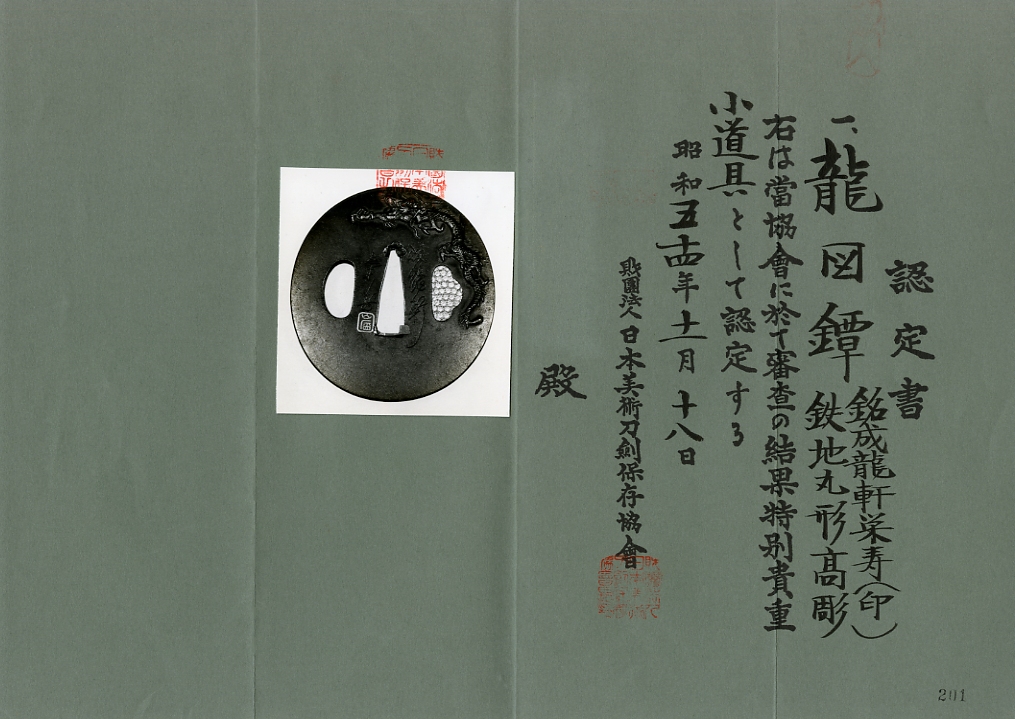 認定書
一、龍図鐔
銘成龍軒栄寿(印)
鉄地丸形高彫
右は當協會に於て審査の結果特別貴重
小道具として認定する
昭和五十四年十一月十八日
財團法人日本美術刀劍保存協會
殿
201